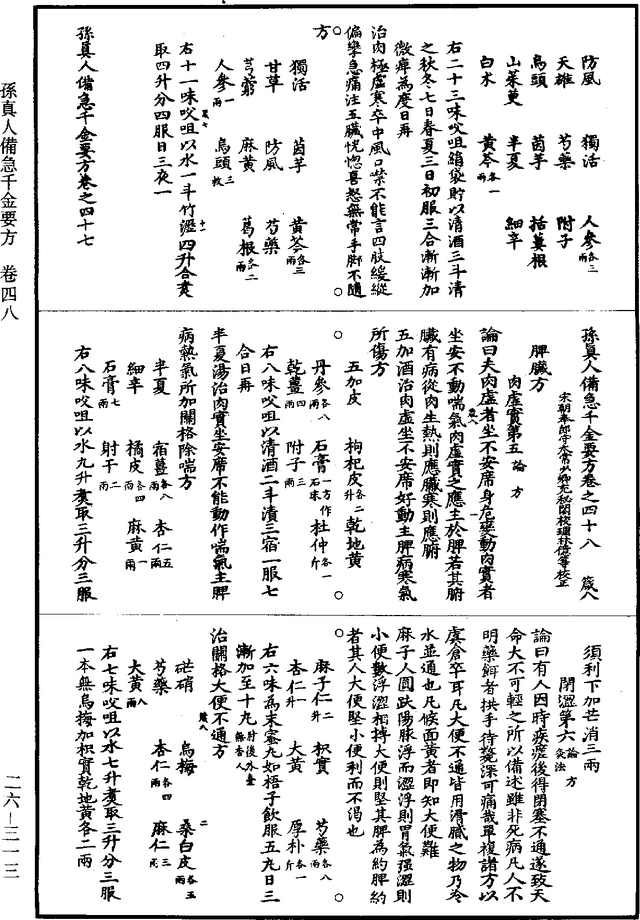 孫真人備急千金要方 卷四八
二六—三一三
防風 獨活 人參各三兩
天雄 芍藥 附子
烏頭 茵芋 括蔞根
山茱萸 半夏 細辛
白朮 黃芩各一兩
右二十三味㕮咀絹袋貯以清酒三斗漬
之秋冬七日春夏三日初服三合漸漸加
微痺為度日再
治肉極虛寒卒中風口噤不能言四肢緩縱
偏攣急痛注五臟恍惚喜怒無常手脚不隨
方
獨活 茵芋 黃芩各三兩
甘草 防風 芍藥
芎藭 麻黃 葛根各二兩
人參一兩 烏頭三枚
右十一味㕮咀以水一斗竹瀝四升合煑
取四升分四服日三夜一
孫真人備急千金要方卷之四十七
孫真人備急千金要方卷之四十八 箴八
宋朝奉郎守太常少卿充秘閣校理林億等校正
脾臟方
肉虛實第五 論 方
論曰夫肉虛者坐不安席身危變動肉實者
坐安不動喘氣肉虛實之應主於脾若其腑
臟有病從肉生熱則應臟寒則應腑
五加酒治肉虛坐不安席好動主脾病寒氣
所傷方
五加皮 枸杞皮各二升 乾地黃
丹參各八兩 石膏一方作石床 杜仲各一斤
乾薑四兩 附子三兩
右八味㕮咀以清酒二斗漬三宿一服七
合日再
半夏湯治肉實坐安席不能動作喘氣主脾
病熱氣所加關格除喘方
半夏 宿薑各八兩 杏仁五兩
細辛 橘皮各四兩 麻黃一兩
石膏七兩 射干二兩
右八味㕮咀以水九升煑取三升分三服
須利下加芒消三兩
閉澀第六 論 方 灸法
論曰有人因時疾瘥後得閉塞不通遂致夭
命大不可輕之所以備述雖非死病凡人不
明藥餌者拱手待斃深可痛哉單複諸方以
虞倉卒耳凡大便不通皆用滑膩之物乃冷
水並通也凡候面黃者即知大便難
麻子人圓趺陽脉浮而澀浮則胃氣强澀則
小便數浮澀相搏大便則堅其脾為約脾約
者其人大便堅小便利而不渴也
麻子仁二升 枳實 芍藥各八兩
杏仁一升 大黃 厚朴各一斤
右六味為末蜜丸如梧子飲服五丸日三
漸加至十丸
治關格大便不通方
芒硝 烏梅 桑白皮各五兩
芍藥 杏仁各四兩 麻仁三兩
大黃八兩
右七味㕮咀以水七升煑取三升分三服
一本無烏梅加枳實乾地黃各二兩